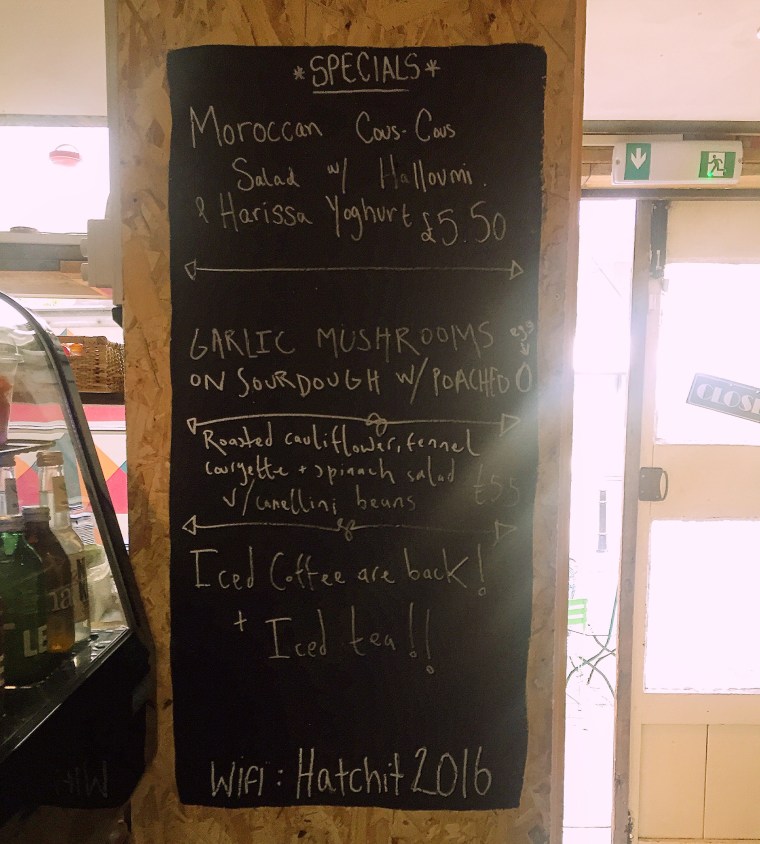 *SPECIALS*
Moroccan Cous-Cous
Salad w/ Halloumi.
& Harissa Yoghurt £5.50
GARLIC MUSHROOMS egg
ON SOURDOUGH W/ POACHED
Roasted cauliflower, fennel
courgette + spinach salad
w/ canellini beans £5.5
Iced Coffee are back!
+ Iced tea!!
WiFi: Hatchit2016
CLOSE
LE